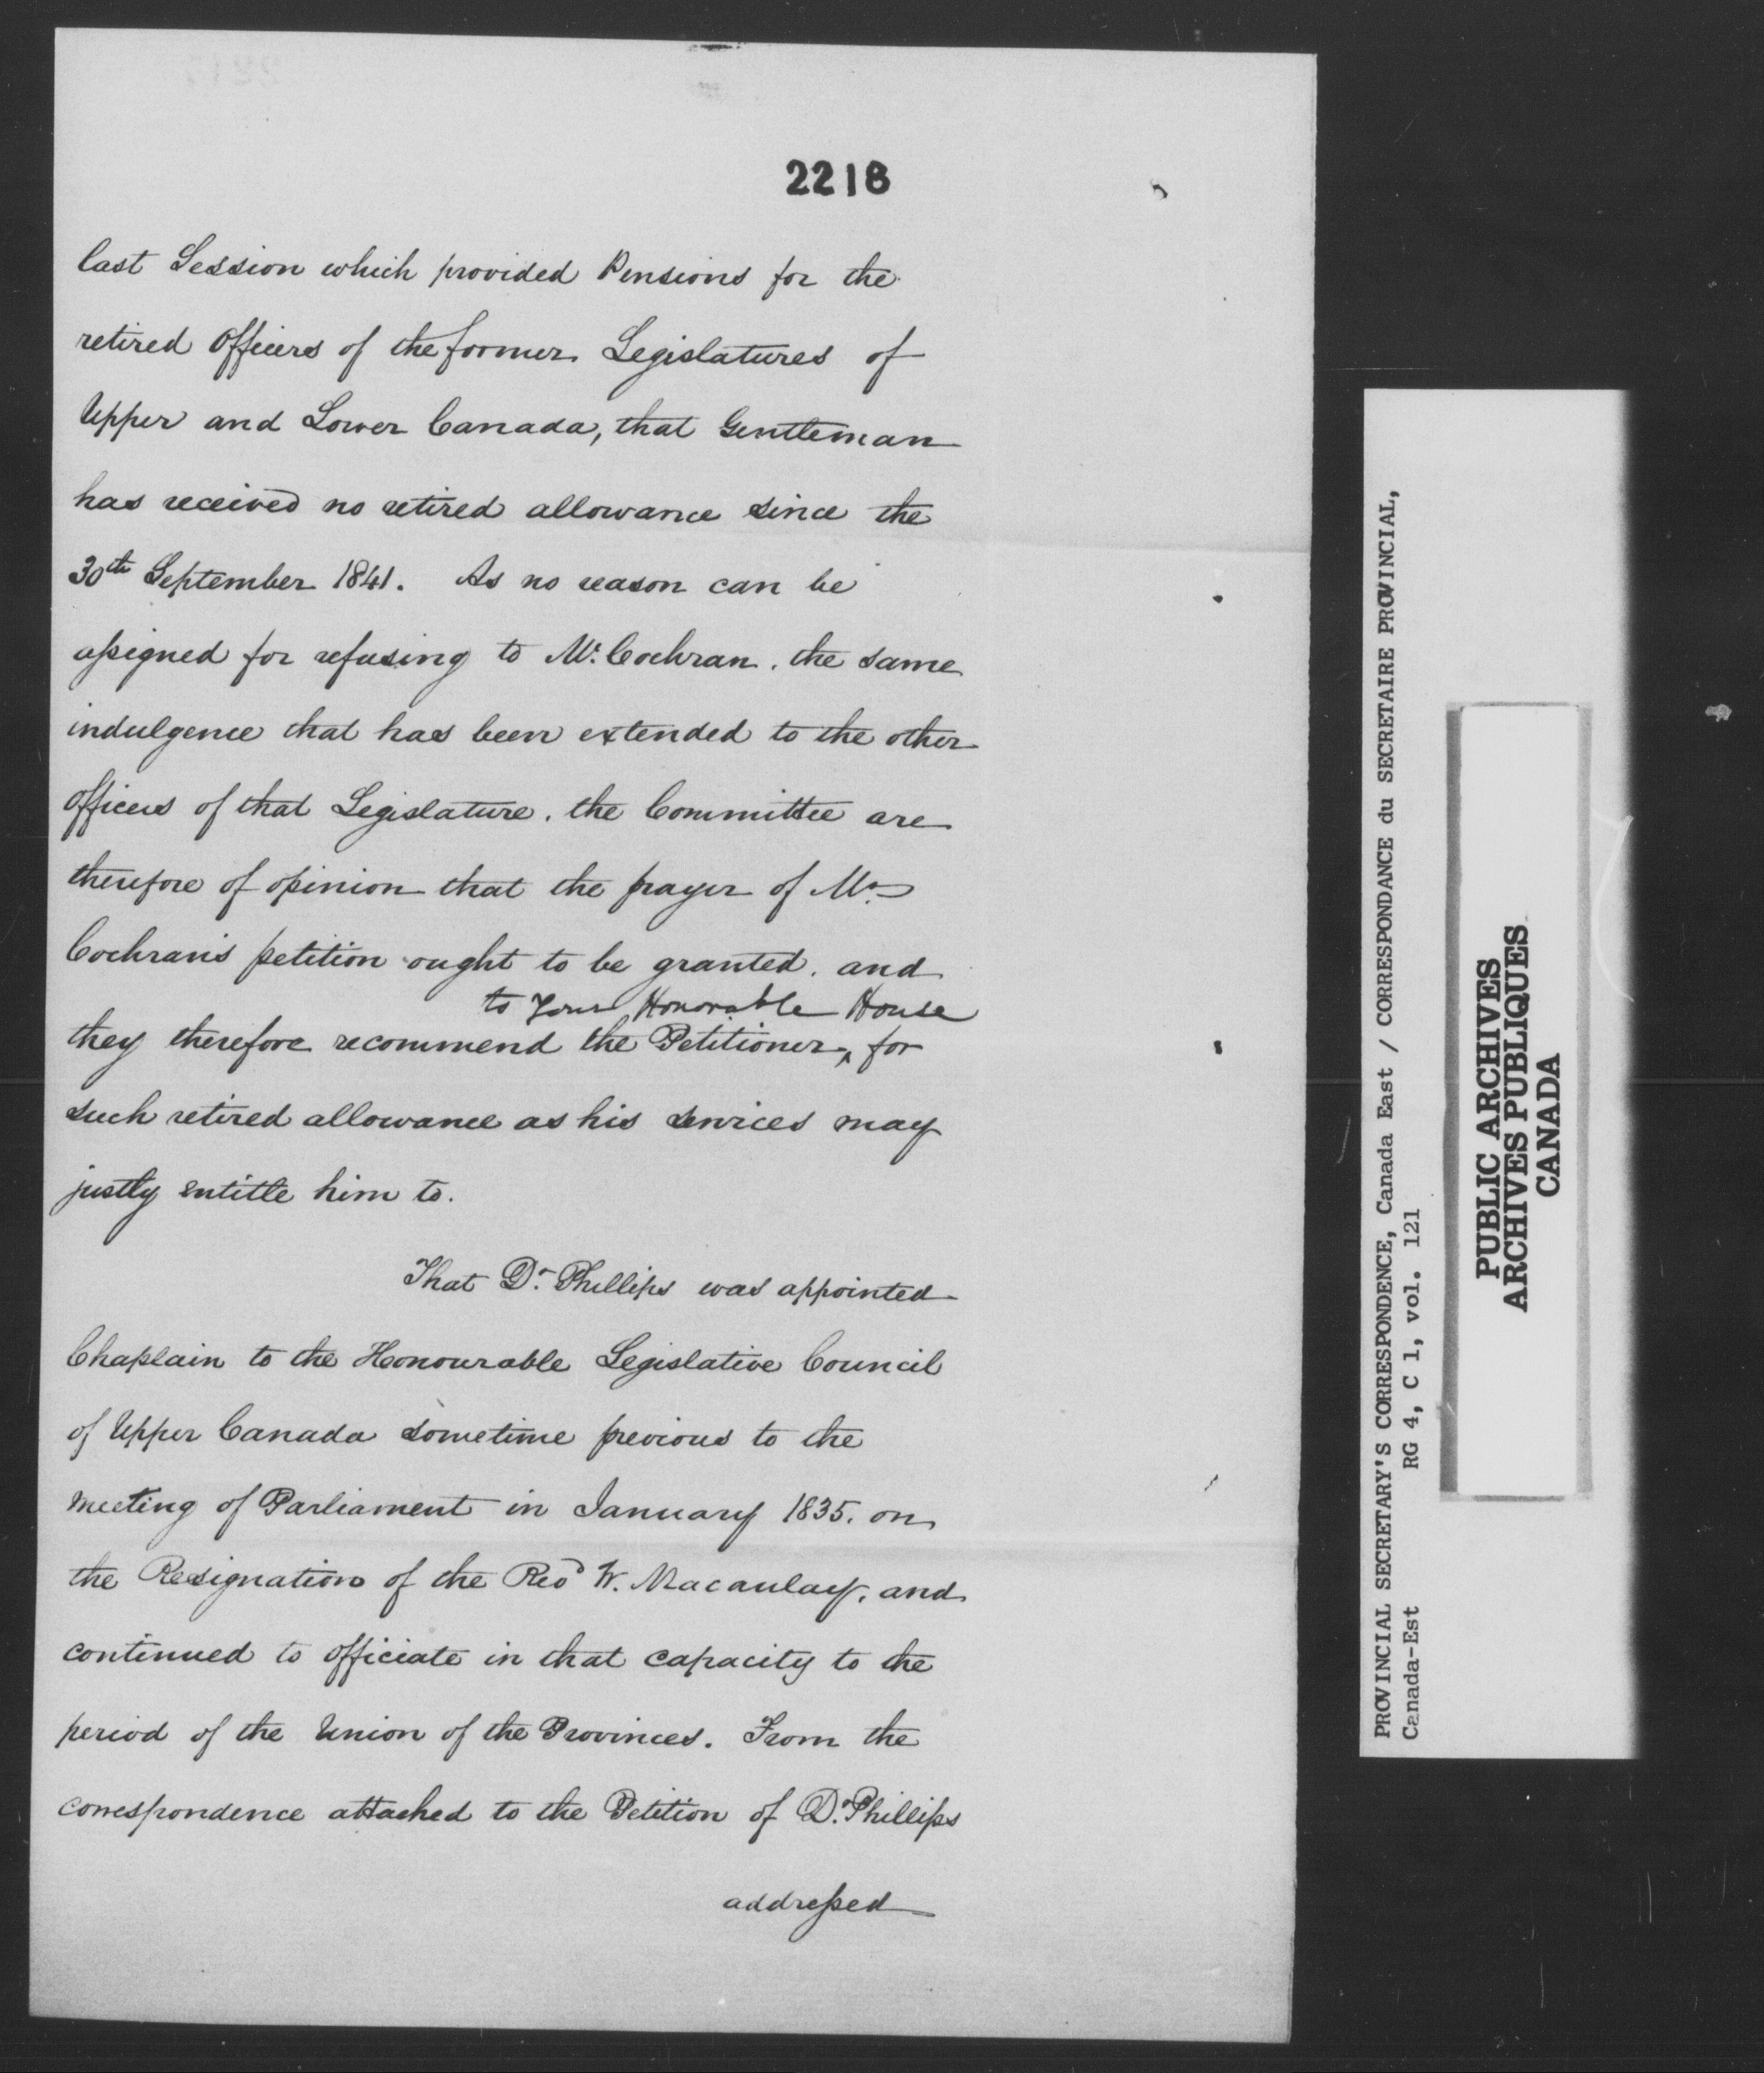 2218
last Session which provided Pensions for the
retired Officers of the former Legislatures of
Upper and Lower Canada, that Gentleman
has received no retired allowance since the
30th September 1841. As no reason can be
assigned for refusing to Mr. Cochran. the same
indulgence that has been extended to the other
Officers of that Legislature. the Committee are
therefore of opinion that the prayer of Mr.
Cochran's petition ought to be granted. and
to Your Honorable House
they therefore recommend the Petitioner, ^ for
such retired allowance as his services may
justly entitle him to.
That Dr. Phillips was appointed
Chaplain to the Honourable Legislative Council
of Upper Canada sometime previous to the
meeting of Parliament in January 1835. on
the Resignation of the Revd W. Macaulay, and
continued to officiate in that capacity to the
period of the Union of the Provinces. From the
correspondence attached to the Petition of Dr. Phillips
addressed
PROVINCIAL SECRETARY'S CORRESPONDENCE, Canada East / CORRESPONDANCE du SECRETAIRE PROVINCIAL,
Canada-Est RG 4, C 1, vol. 121
PUBLIC ARCHIVES
ARCHIVES PUBLIQUES
CANADA